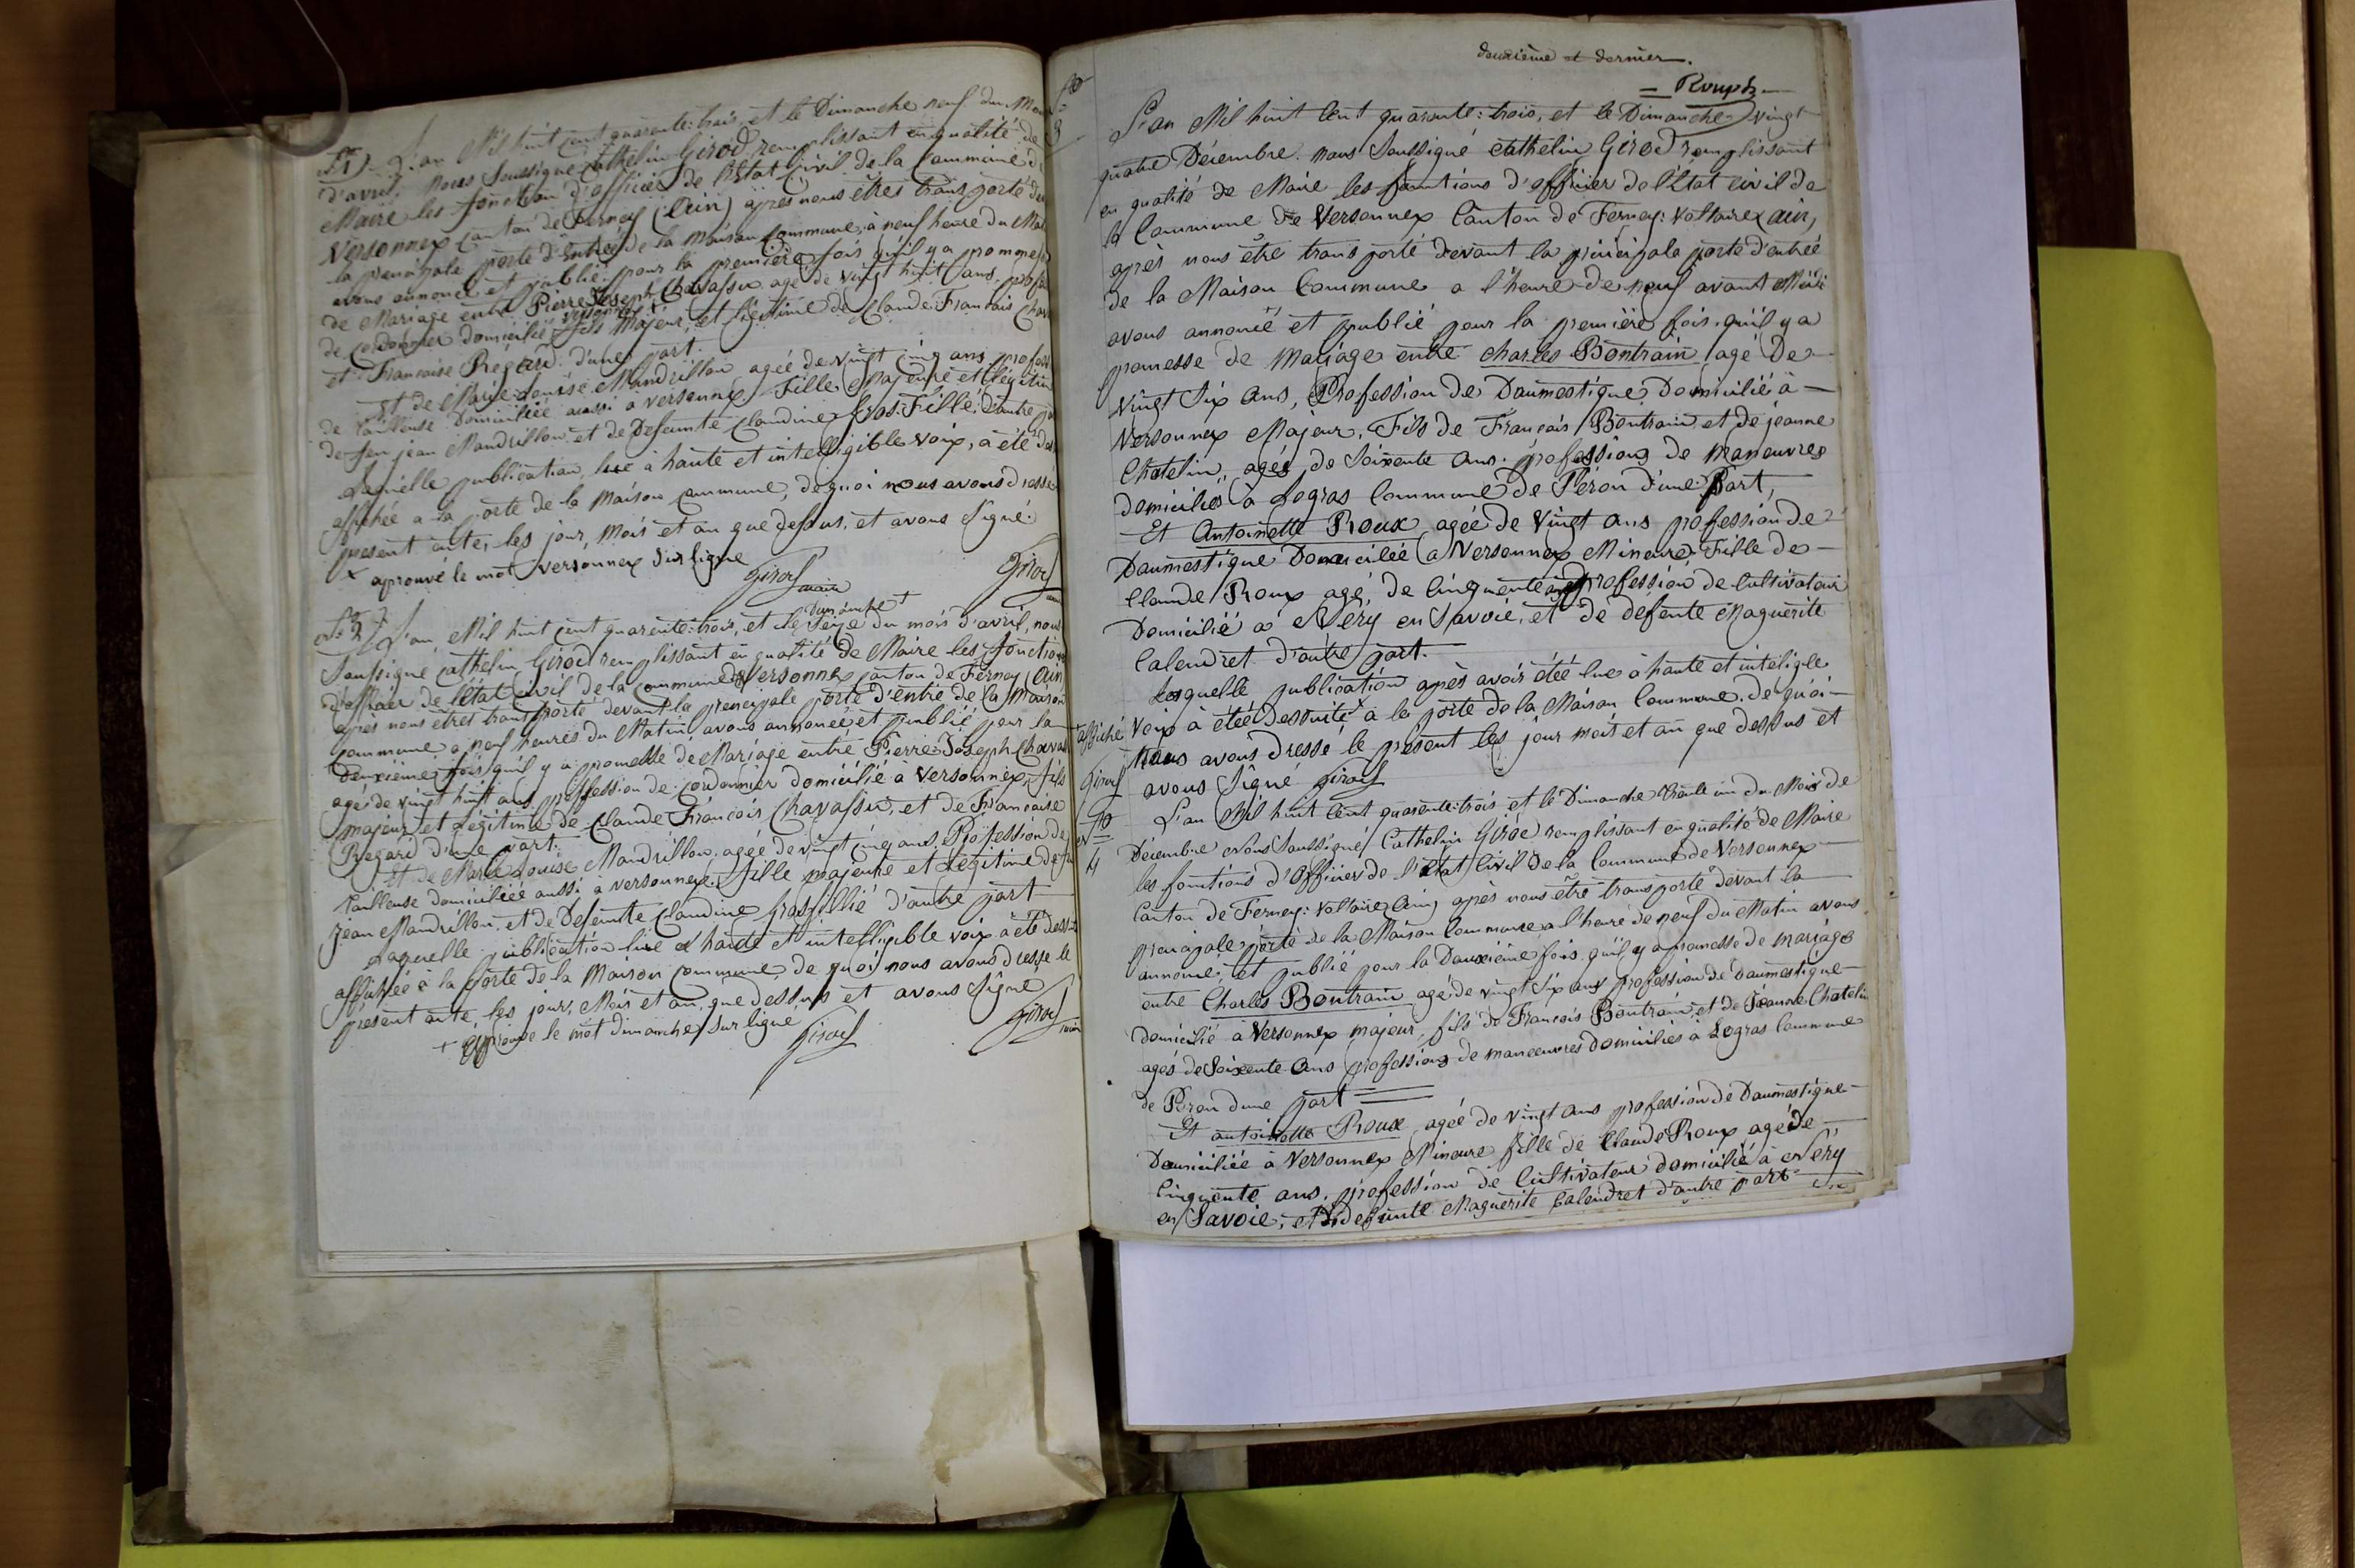 L'an Mil huit cent quarante: trois, et le Dimanche neuf du Moi
d'avril, nous Soussigné Cathelin Girod remplissant en qualité de
Maire les fonction d'officier de l'Etat Civil de la Commune de
Versonnex canton de Ferney (Ain) après nous êtres transporté dev
la principale porte d'entrée de la Maison Commune, à neuf heure du Mat
avons annoncé et publié pour la première fois qu'il y a promesse
de Mariage entre Pierre Joseph Chavassu agé de vingt huit ans, profes
de Cordonnier domicilié versonnex x fils Majeur, et légitime de Claude Francais Chav
et Francoise Regard. d'une part.
Et de Marie Louise Mandrillon agée de vingt cinq ans profess
de tailleuse Domiciliée aussi à versonnex, Fille Majeure et légitim
de feu jean Mandrillon, et de Defeunte Claudine gros: Fillié. d'autre pa
Laquelle publication, lue à haute et intelligible voix, a été de
affichée a la porte de la Maison Commune, de quoi nous avons dressé
present acte, les jour, Mois et an que dessus, et avons Signé.
x aprouvé le mot versonnex sur ligne
Girod maire
Girod maire
N° 2 L'an, Mil huit cent quarante: trois, et le dimanche + Seize du mois d'avril, nous
Soussigné Cathelin Girod remplissant en qualité de Maire les fonctions
d'officier de l'état civil de la commune de Versonnex canton de Ferney (Ain
après nous êtres transporté devant la principale porte d'entré de la Maison
Commune à neuf heures du Matin, avons annoncé et publié pour la
Deuxième fois qu'il y a promesse de Mariage entre Pierre: Joseph Chavas
agé de vingt huit ans, proffession de: cordonnier domicilié à Versonnex, fils
majeur et légitime de Claude François Chavassu, et de Francaise
Regard d'une part.
Et de Marie Louise Mandrillon, agée de vingt cinq ans, Profession de
tailleuse domiciliée aussi à versonnex, fille majeure et légitime de fe
Jean Mandrillon, et de Defeunte Claudine grosfillié d'autre part
Laquelle publication lue à haute et intelligible voix a été dess
affichée à la porte de la Maison Commune, de quoi nous avons dressé le
présent acte, les jour, Mois et an, que dessus et avons Signé
+ approuvé le mot dimanche sur ligné
Girod
Girod maire
deuxième et dernier.
= Rouph
N° = 3
L'an Mil huit Cent quarante: trois, et le Dimanche vingt
quatre Décembre. nous Soussigné Cathelin Girod remplissant
en qualité de Maire les fonctions d'officier de l'Etat civil de
la Commune de Versonnex Canton de Ferney: Voltaire (ain,
après nous être transporté devant la principale porte d'entrée
de la Maison Commune a l'heure de neuf avant Midi
avons annoncé et publié pour la première fois. qu'il y a
promesse de mariage entre charles Bontrain agé De
vingt Six Ans, Profession de Daumestique Domicilié à
Versonnex Majeur, Fils de Français Bontrain et de jeanne
Chatelin, agés de Soixente ans. professions de maneuvres
domiciliés à Logras Commune de Péron d'une Part,
Et Antoinette Roux agée de Vingt ans profession de
Daumestique Domiciliée a Versonnex Mineure Fille de
Claude Roux agé, de Cinquente ans profession de Cultivateur
Domicilié à Néry en Savoie, et de defente Maguerite
Calendret d'autre part.
Lasquelle publication après avoir étée lue à haute et inteligle
Voix à étée Dessuite x à la porte de la Maison Commune. de quoi
affiché
Nous avons dressé le présent les jour mois et an que dessus et
Girod
avons Signé Girod
N° = 4
L'an Mil huit Cent quarente: trois et le Dimanche trente un du Mois de
Décembre Nous Soussigné Cathelin Girod remplissant en qualité de Maire
les fonctions d'Officier de l'état Civil de la Commune de Versonnex
Canton de Ferney: Voltaire (ain) après nous être transporté devant la
principale porte de la Maison Commune a l'heure de neuf du Matin avons
annoncé, et publié pour la Deuxième fois. qu'il y a promesse de mariage
entre Charles Bontrain agé de vingt Six ans profession de Daumestique
domicilié à Versonnex majeur, fils de Francois Bontrain et de Jeanne Chatelin
agés de Soixente Ans professions de manoeuvres domiciliés à Logras Commune
de Péron d'une part
Et antoinette Roux agée de vingt ans profession de Daumestique
Domiciliée à Versonnex Mineure fille de Claude Roux agé de
Cinquente ans, profession de Cultivateur domicilié à Néry
en Savoie, et de defunte Maguerite Calendret d'autre part